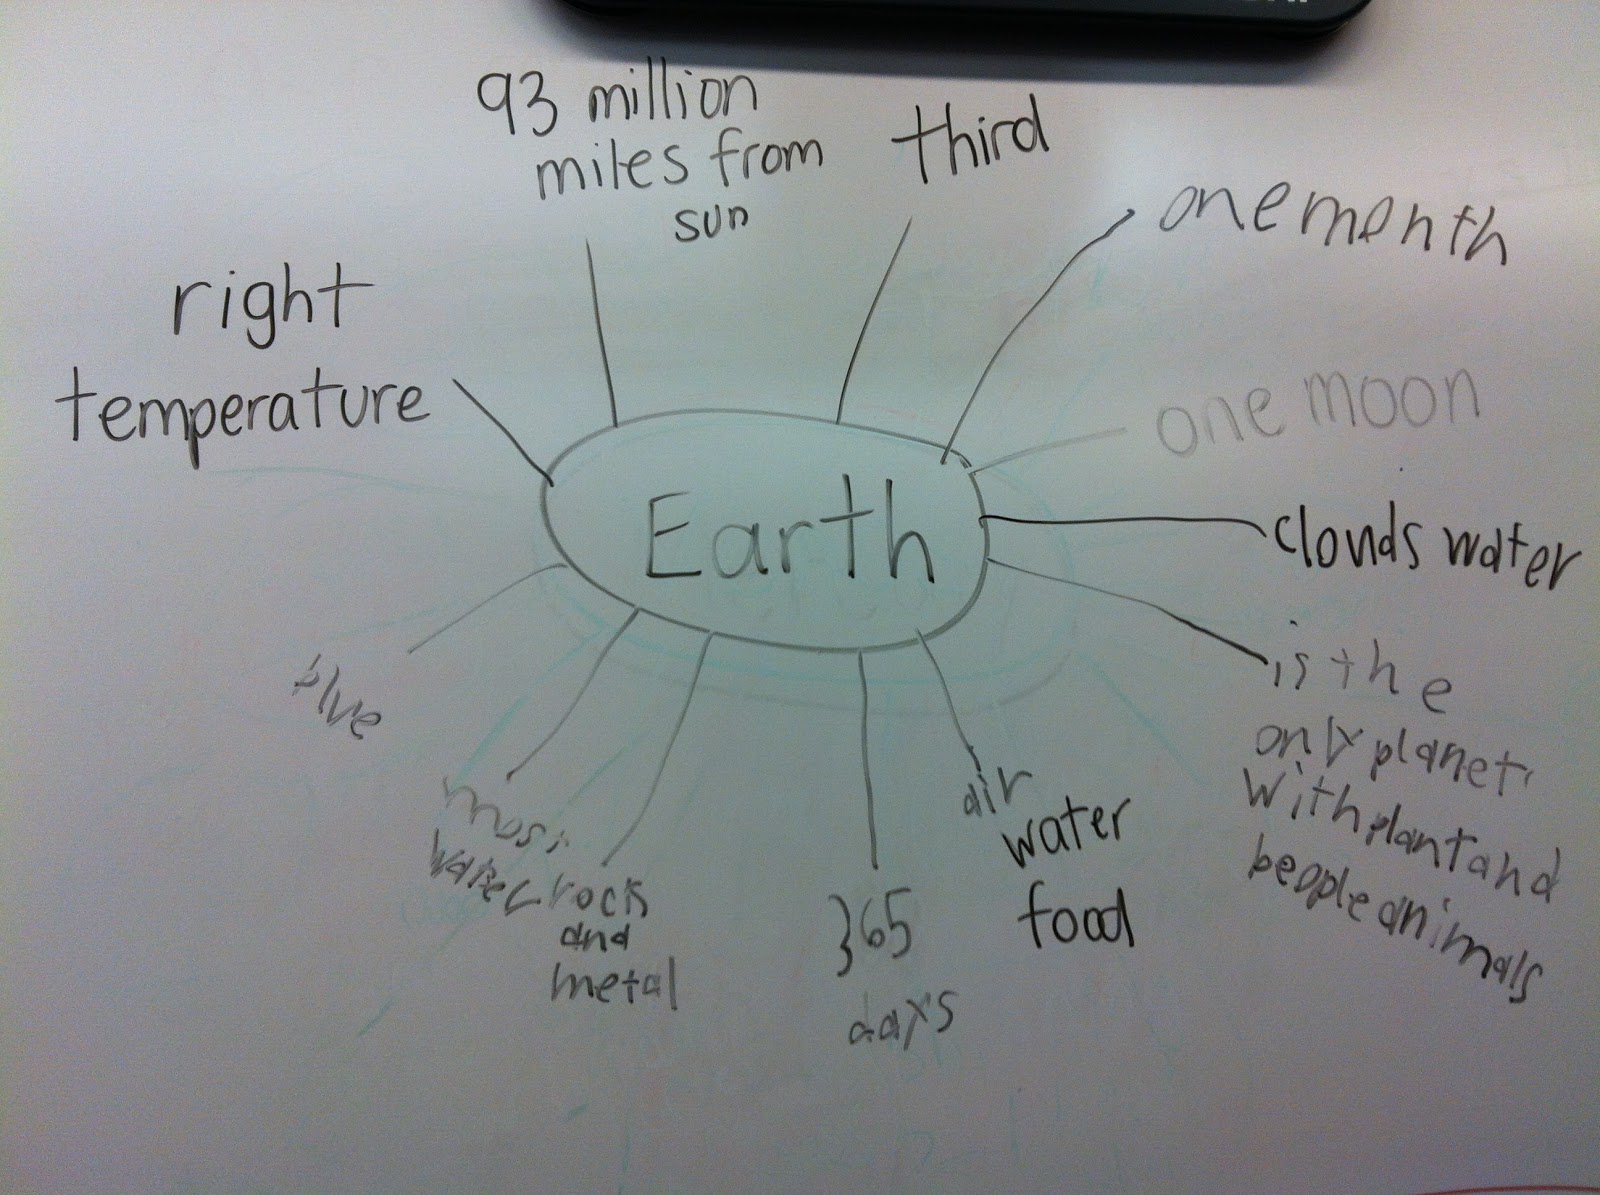 93 million
miles from
sun
third
one month
right
temperature
one moon
Earth
clouds water
is the
only planet
with plant and
beople animals
blue
most
water
rock
and
metal
365
days
air
water
food